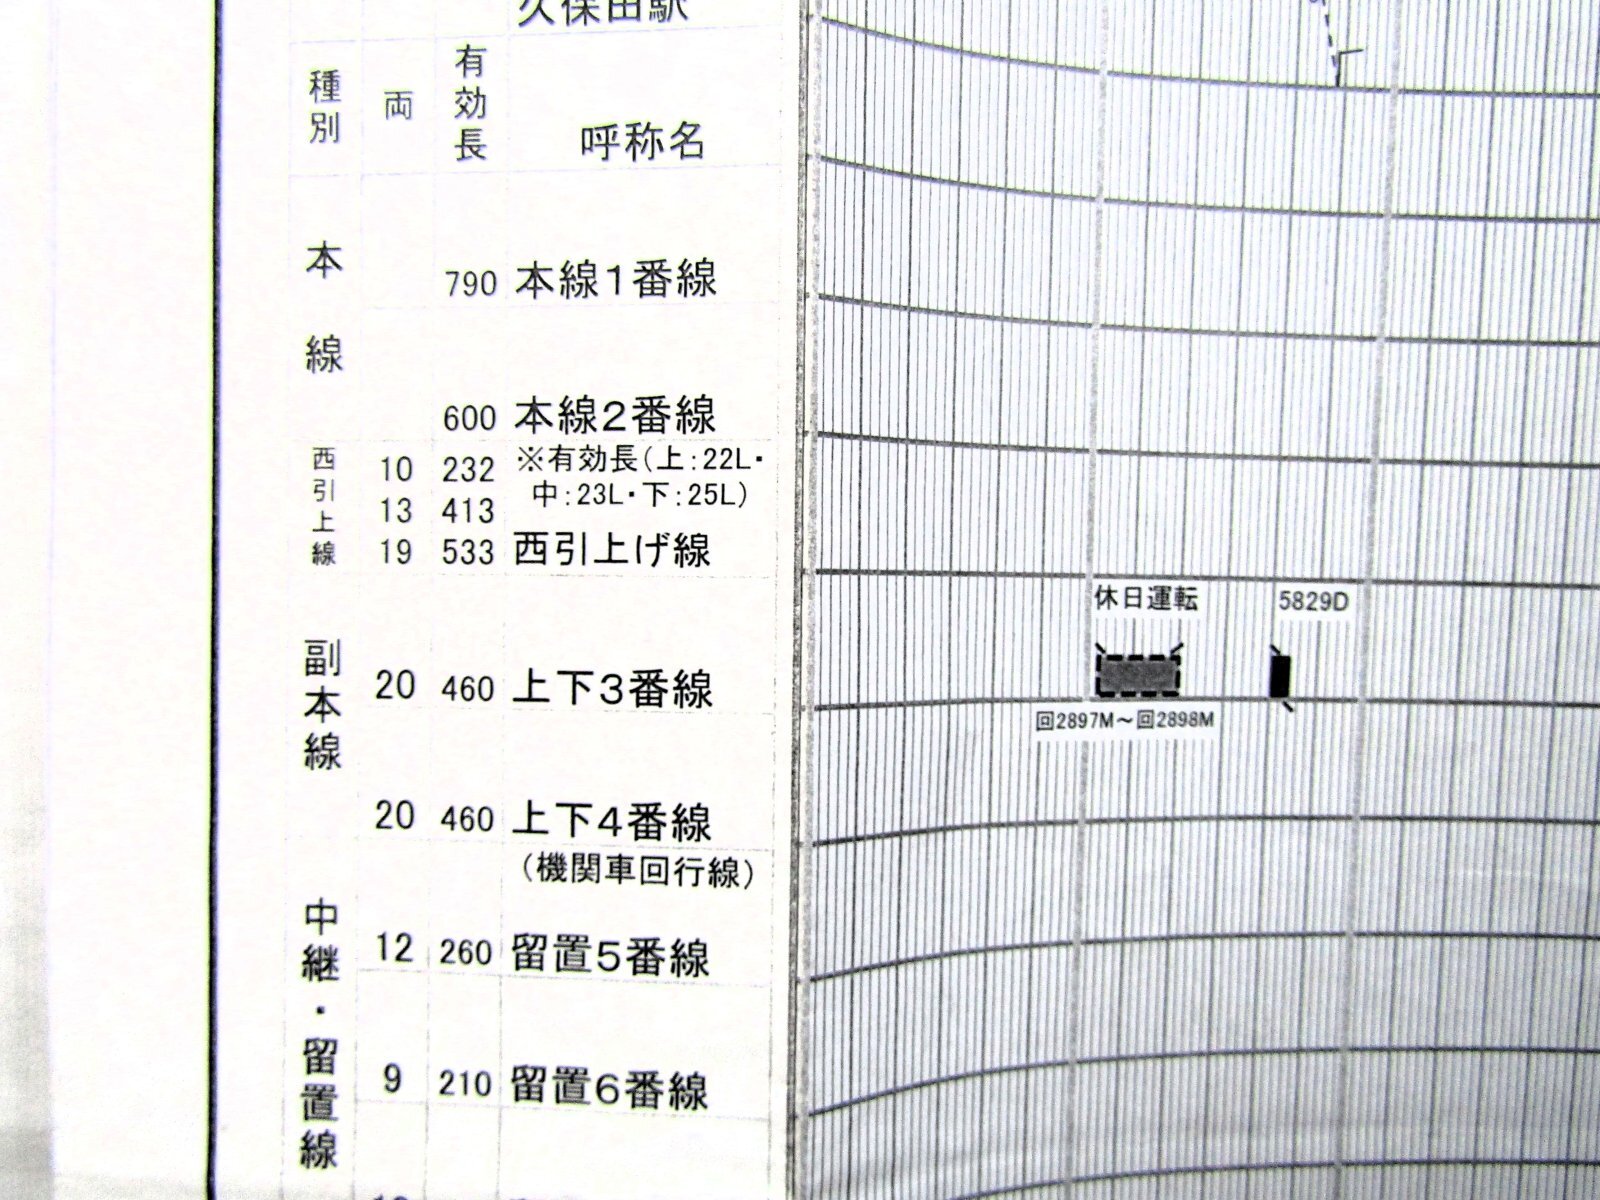 久保田駅
種別
両
有効長
呼称名
本線
790 本線1番線
600 本線2番線
西引上線
10 232 ※有効長(上:22L・
13 413 中:23L・下:25L)
19 533 西引上げ線
休日運転 5829D
副本線
20 460 上下3番線
回2897M〜回2898M
20 460 上下4番線
(機関車回行線)
中継・留置線
12 260 留置5番線
9 210 留置6番線